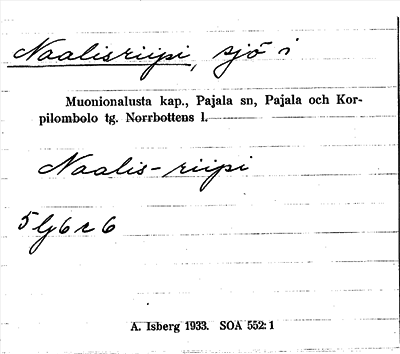 Naalisriipi, sjö i
Muonionalusta kap., Pajala sn, Pajala och Kor-
pilombolo tg. Norrbottens l.
Naalis-riipi
5 lj 6 r 6
A. Isberg 1933. SOÄ 552:1